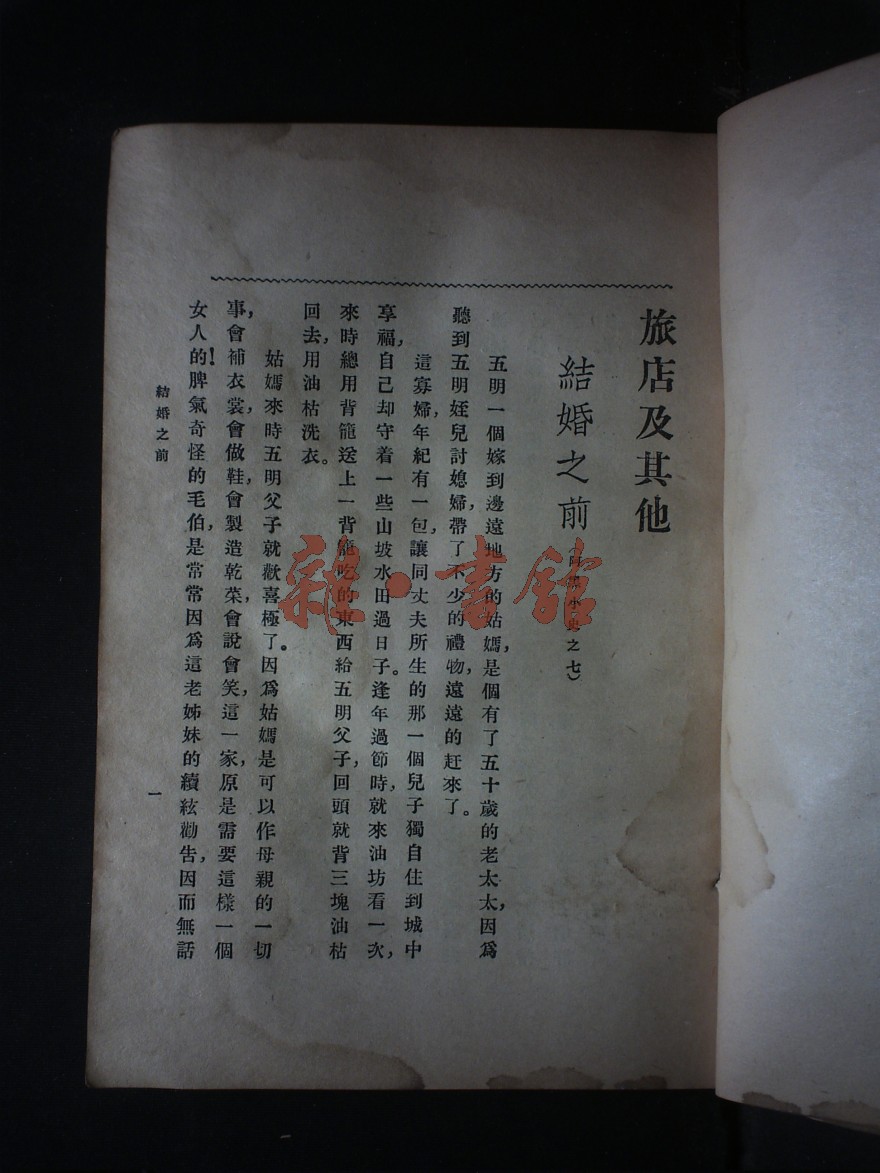 旅店及其他
結婚之前(阿黑小史之七)
五明一個嫁到邊遠地方的姑媽,是個有了五十歲的老太太,因爲
聽到五明姪兒討媳婦,帶了不少的禮物,遠遠的赶來了。
這寡婦,年紀有一包,讓同丈夫所生的那一個兒子獨自住到城中
享福,自己却守着一些山坡水田過日子。逢年過節時,就來油坊看一次,
來時總用背籠送上一背籠吃的東西給五明父子,回頭就背三塊油枯
回去,用油枯洗衣。
姑媽來時五明父子就歡喜極了。因爲姑媽是可以作母親的一切
事,會補衣裳,會做鞋,會製造乾菜,會說會笑,這一家,原是需要這樣一個
女人的!脾氣奇怪的毛伯,是常常因爲這老姊妹的續絃勸告,因而無話
結婚之前
一
雜·書館